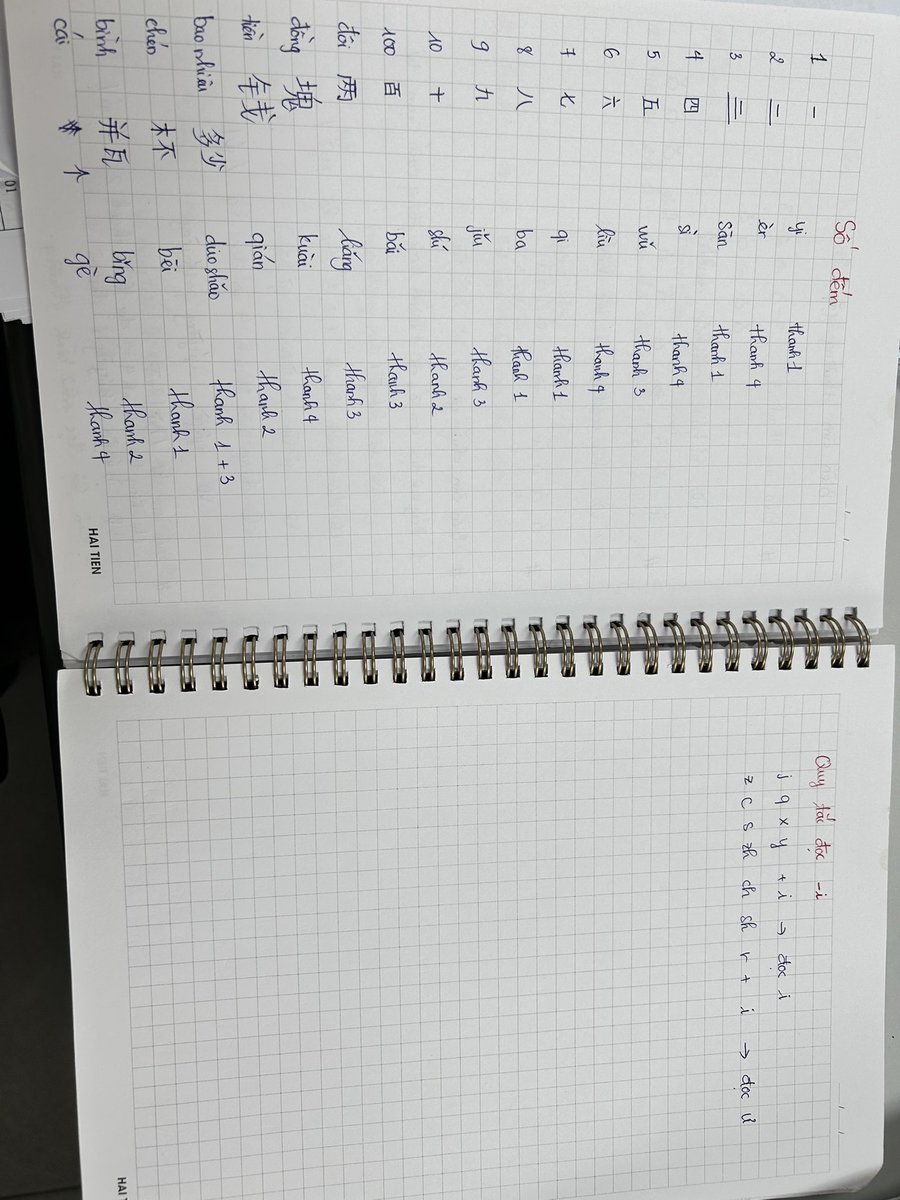 Số đếm
1 一 yi thanh 1
2 二 èr thanh 4
3 三 sān thanh 1
4 四 sì thanh 4
5 五 wǔ thanh 3
6 六 lìu thanh 4
7 七 qi thanh 1
8 八 ba thanh 1
9 九 jǐu thanh 3
10 十 shí thanh 2
100 百 bǎi thanh 3
đôi 两 liǎng thanh 3
đồng 塊 kuài thanh 4
tiền 钱 qián thanh 2
bao nhiêu 多少 duo shǎo thanh 1 + 3
chén 杯 bēi thanh 1
bình 瓶 bíng thanh 2
cái 个 gè thanh 4
HAI TIEN
Quy tắc đọc -i
j q x y + i → đọc i
z c s zh ch sh r + i → đọc ư
HAI T
01